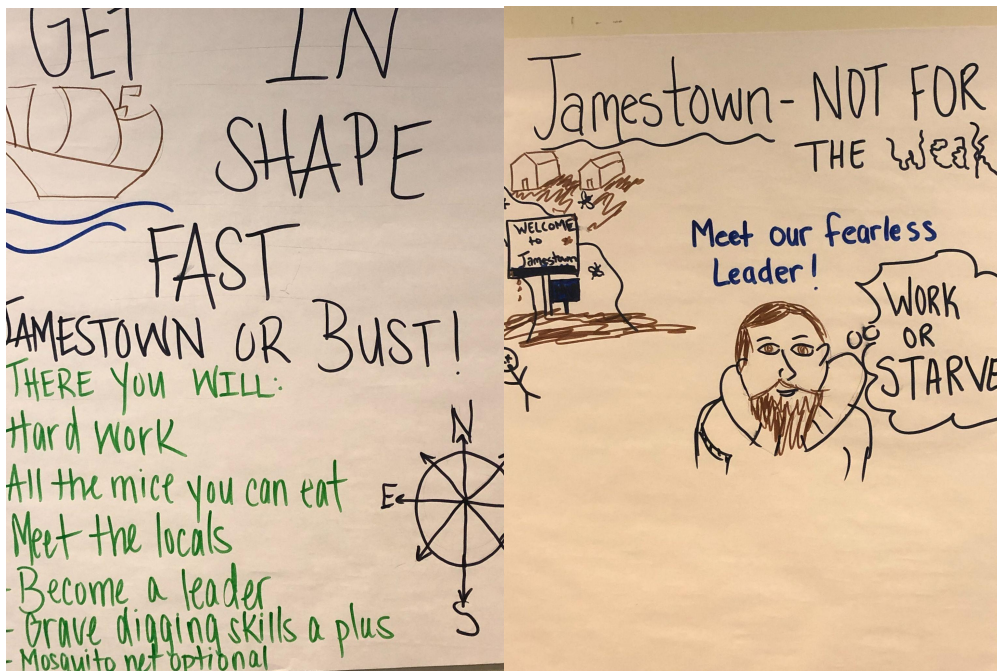 GET IN
SHAPE
FAST
JAMESTOWN OR BUST!
THERE YOU WILL:
Hard work
All the mice you can eat
Meet the locals
- Become a leader
- Grave digging skills a plus
- Mosquito net optional
N
E
S
Jamestown - NOT FOR
THE Weak
WELCOME
to
Jamestown
Meet our fearless
Leader!
WORK
OR
STARVE